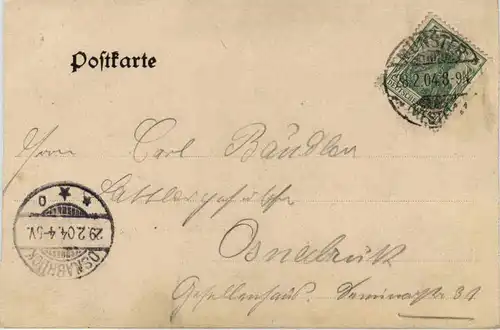 Postkarte
MÜNSTER
29.2.04.8-9V.
(WESTF.)
Herrn Carl Bäudler
Sattlergehülfe
Osnabrück
Gesellenhaus. Seminarstr 31
OSNABRÜCK
29.2.04.4-5V.